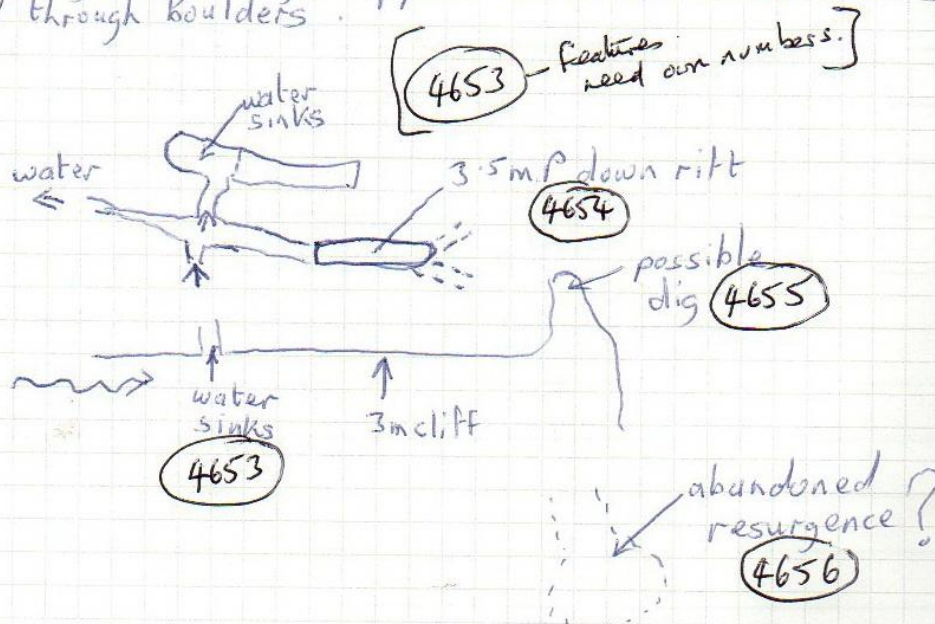 through boulders.
[4653 - Features
need own numbers.]
water
sinks
water
3.5m P down rift
4654
possible
dig 4655
water
sinks
4653
3m cliff
abandoned
resurgence ?
4656